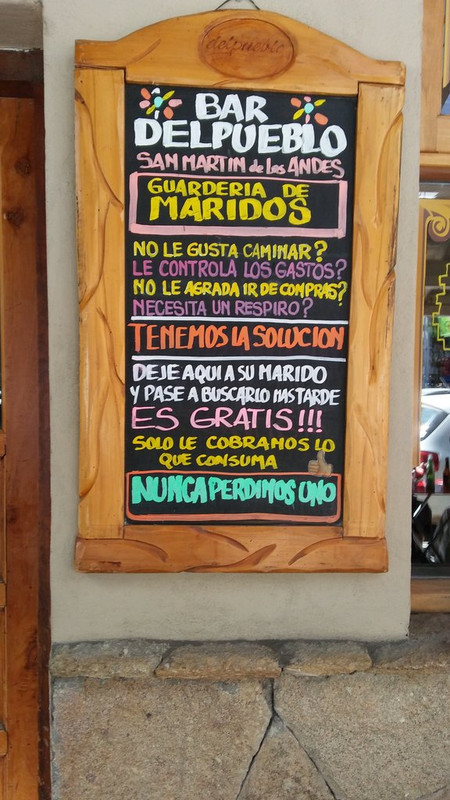 delpueblo
BAR
DELPUEBLO
SAN MARTIN de los ANDES
GUARDERIA DE
MARIDOS
NO LE GUSTA CAMINAR?
LE CONTROLA LOS GASTOS?
NO LE AGRADA IR DE COMPRAS?
NECESITA UN RESPIRO?
TENEMOS LA SOLUCION
DEJE AQUI A SU MARIDO
Y PASE A BUSCARLO MAS TARDE
ES GRATIS!!!
SOLO LE COBRAMOS LO
QUE CONSUMA
NUNCA PERDIMOS UNO